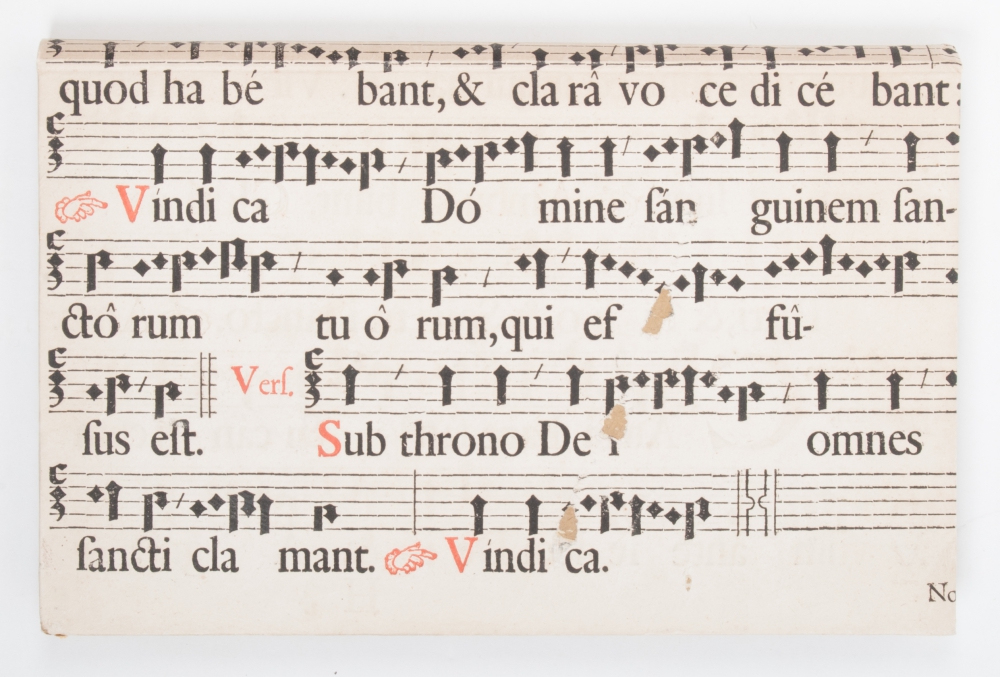 quod ha bé bant, & cla râ vo ce di cé bant:
Víndi ca Dó mine ſán guinem ſan-
ctô rum tu ô rum, qui ef fû-
ſus eſt. Verſ. Sub throno De i omnes
ſancti cla mant. Víndi ca.
No